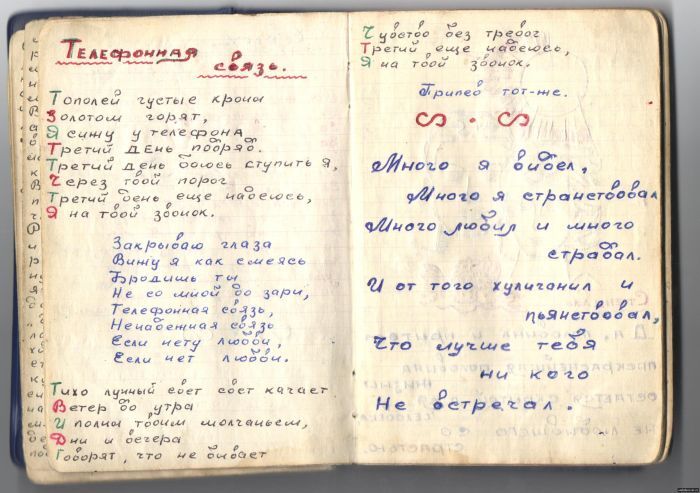 Телефонная
связь.
Тополей густые кроны
Золотом горят,
Я сижу у телефона
Третий день подряд.
Третий день боюсь ступить я,
Через твой порог
Третий день еще надеюсь,
Я на твой звонок.
Закрываю глаза
Вижу я как смеясь
Бродишь ты
Не со мной до зари,
Телефонная связь,
Ненадежная связь
Если нету любви,
Если нет любви.
Тихо лунный свет свет качает
Ветер до утра
И полны твоим молчаньем,
Дни и вечера
Говорят, что не бывает
Чувство без тревог
Третий еще надеюсь,
Я на твой звонок.
Припев тот-же.
Много я видел,
Много я странствовал
Много любил и много
страдал.
И от того хулиганил и
пьянствовал,
Что лучше тебя
ни кого
Не встречал.